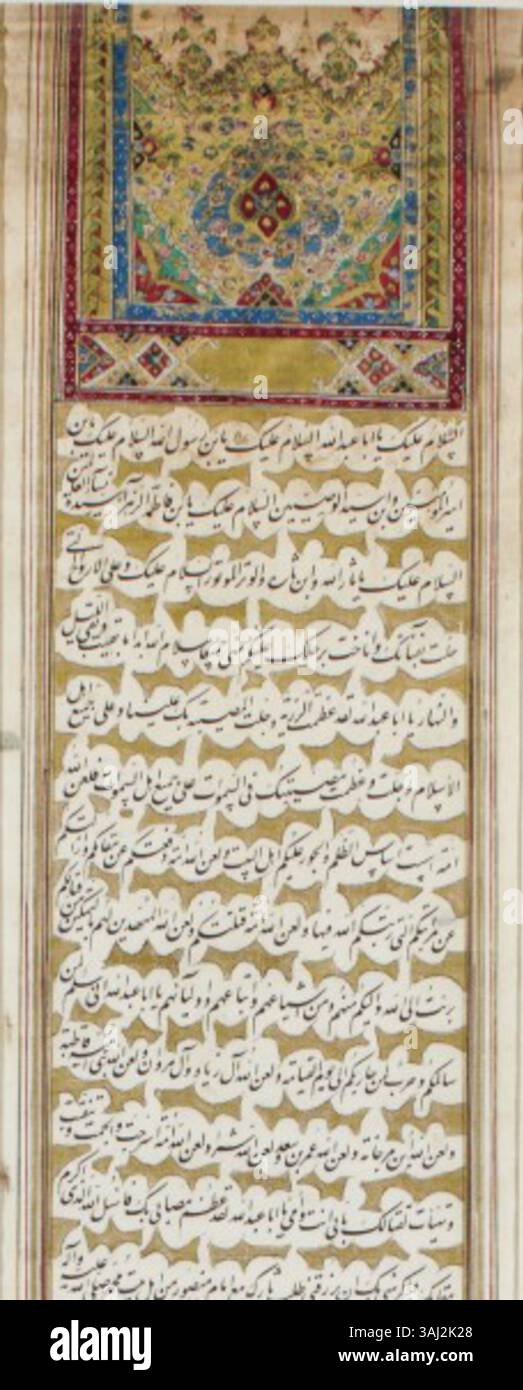 السلام عليك يا ابا عبدالله السلام عليك يابن رسول الله السلام عليك يابن
امير المؤمنين وابن سيد الوصيين السلام عليك يابن فاطمة الزهراء سيدة نساء العالمين
السلام عليك يا ثار الله وابن ثاره والوتر الموتور السلام عليك وعلى الارواح التي
حلت بفنائك واناخت برحلك عليكم مني سلام الله ابدا ما بقيت وبقي الليل
والنهار يا ابا عبدالله لقد عظمت الرزية وجلت المصيبة بك علينا وعلى جميع اهل
الاسلام وجلت وعظمت مصيبتك في السموات على جميع اهل السموات فلعن الله
امة اسست اساس الظلم والجور عليكم اهل البيت ولعن الله امة دفعتكم عن مقامكم وازالتكم
عن مراتبكم التي رتبكم الله فيها ولعن الله امة قتلتكم ولعن الله الممهدين لهم بالتمكين من قتالكم
برئت الى الله واليكم منهم ومن اشياعهم واتباعهم واوليائهم يا ابا عبدالله اني سلم لمن
سالمكم وحرب لمن حاربكم الى يوم القيامة ولعن الله آل زياد وآل مروان ولعن الله بني امية قاطبة
ولعن الله ابن مرجانة ولعن الله عمر بن سعد ولعن الله شمرا ولعن الله امة اسرجت والجمت وتنقبت
وتهيأت لقتالك بابي انت وامي يا ابا عبدالله لقد عظم مصابي بك فاسئل الله الذي اكرم
مقامك ان يرزقني طلب ثارك مع امام منصور من اهل بيت محمد صلى الله عليه وآله
alamy
Image ID: 3AJ2K28
www.alamy.com